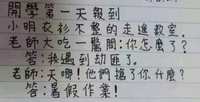 開學第一天報到
小明衣衫不整的走進教室。
老師大吃一驚問:你怎麼了?
答:我遇到劫匪了。
老師:天哪!他們搶了你什麼?
答:暑假作業!